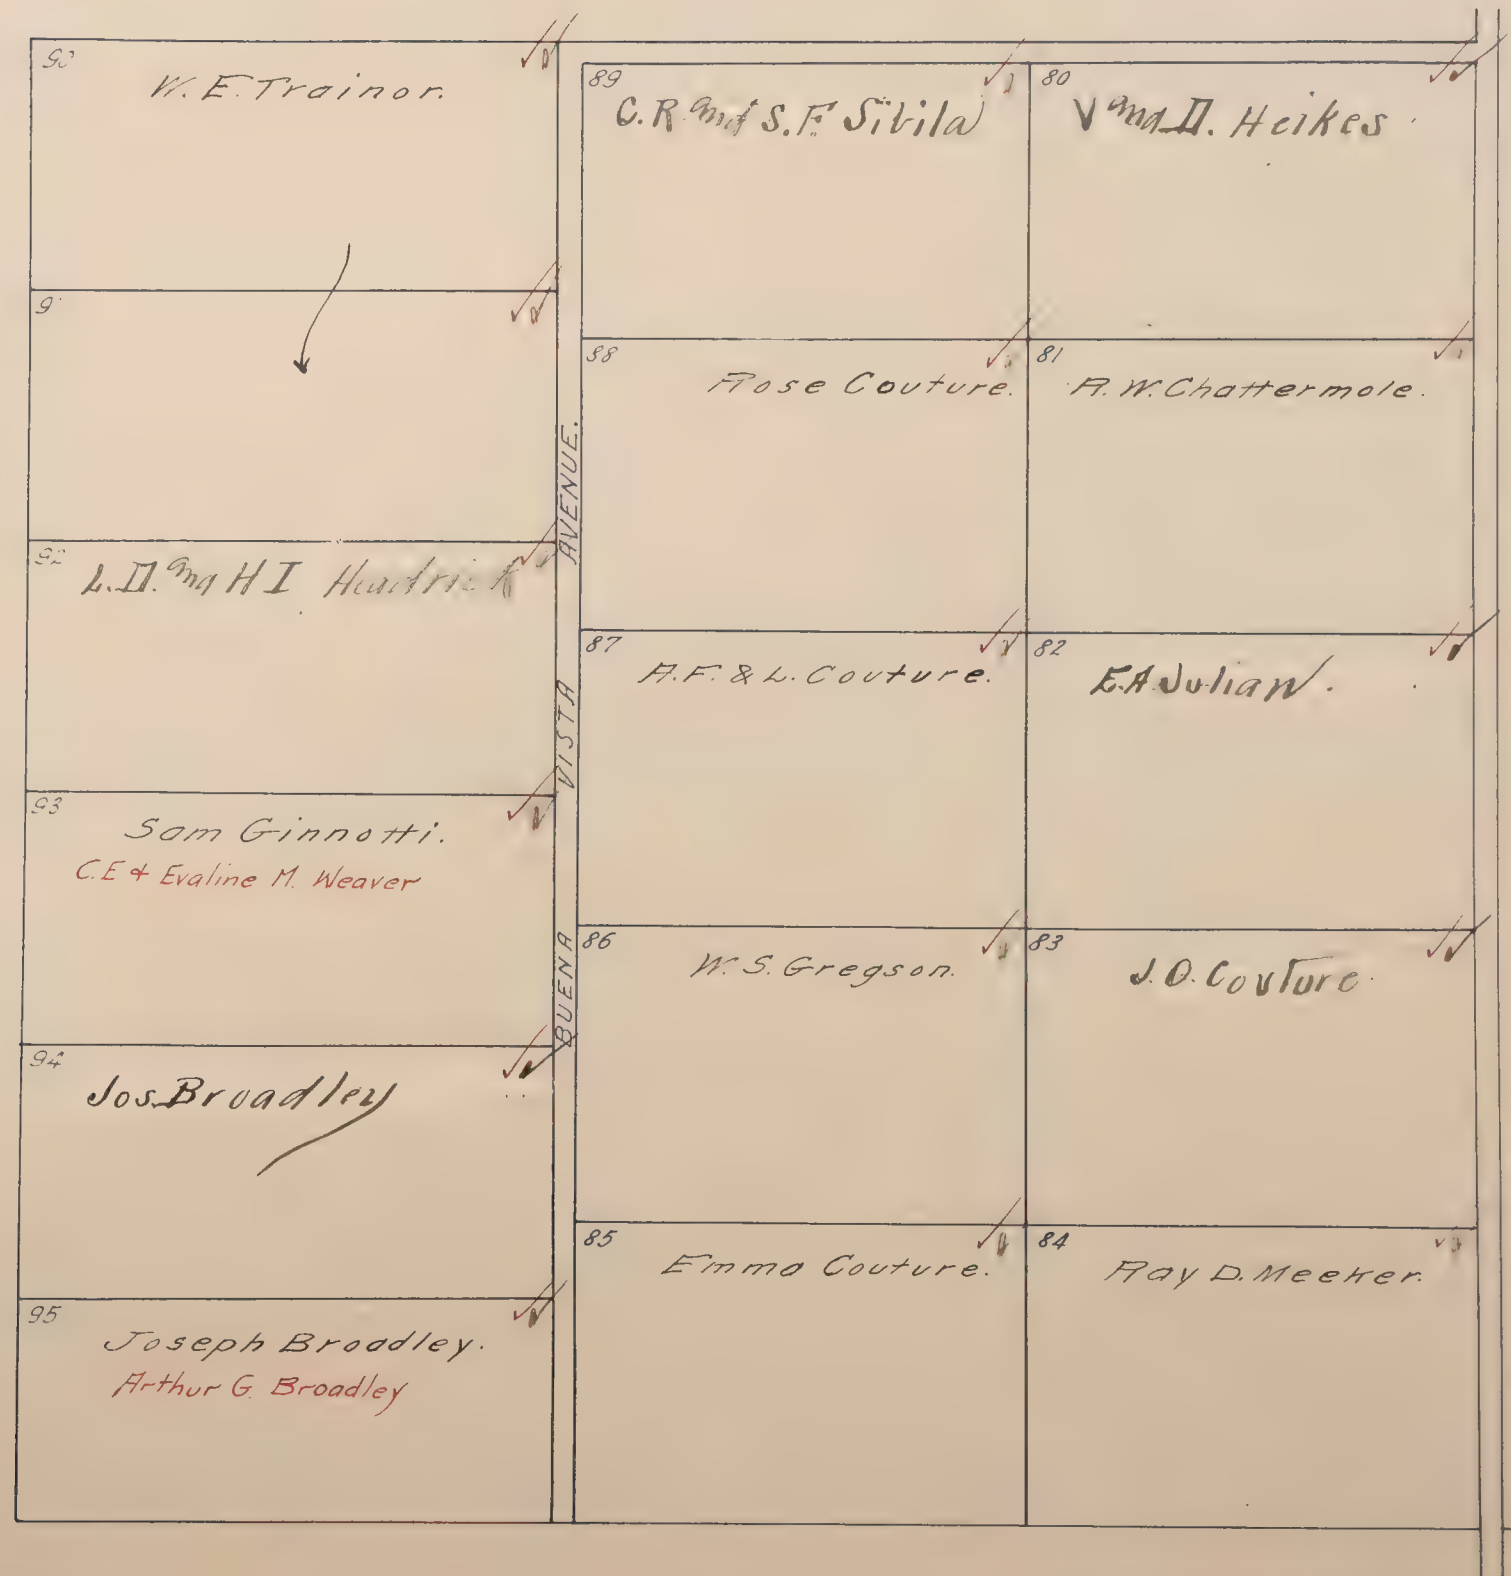 90
W. E. Trainor.
9
92
L. D. and H I Hendrick
93
Sam Ginnotti.
C. E & Evaline M. Weaver
94
Jos. Broadley
95
Joseph Broadley.
Arthur G. Broadley
BUENA VISTA AVENUE.
89
C. R and S. F Sibila
88
Rose Couture.
87
A. F. & L. Couture.
86
W. S. Gregson.
85
Emma Couture.
80
V and D. Heikes
81
R. W. Chattermole.
82
E. A. Julian.
83
J. O. Couture
84
Ray D. Meeker.